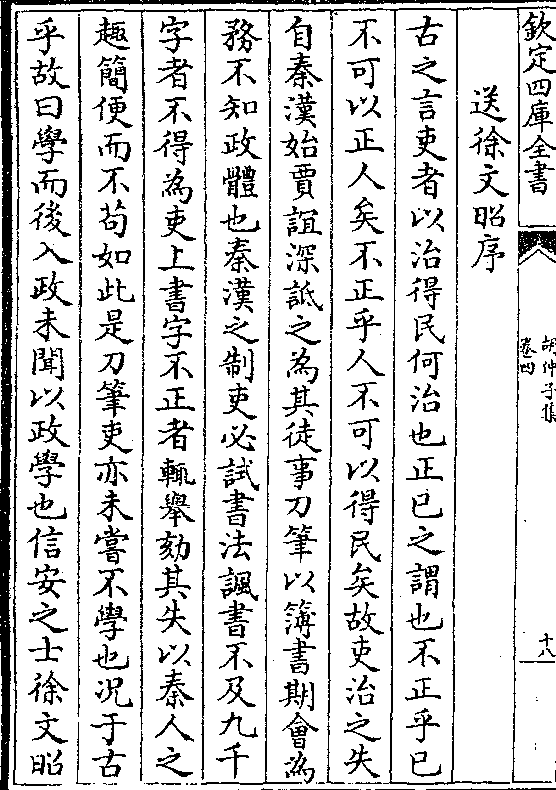 欽定四庫全書
胡仲子集
卷四
十八
送徐文昭序
古之言吏者以治得民何治也正已之謂也不正乎已
不可以正人矣不正乎人不可以得民矣故吏治之失
自秦漢始賈誼深詆之為其徒事刀筆以簿書期會為
務不知政體也秦漢之制吏必試書法諷書不及九千
字者不得為吏上書字不正者輒舉劾其失以秦人之
趣簡便而不苟如此是刀筆吏亦未嘗不學也况于古
乎故曰學而後入政未聞以政學也信安之士徐文昭